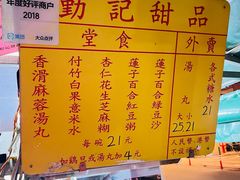 年度好评商户
2018
美团 大众点评
勤記甜品
堂食
外賣
香滑麻蓉湯丸
付竹白果薏米水
杏仁花生芝麻糊
蓮子百合紅豆沙
蓮子百合綠豆沙
每碗21元
如鷄旦或湯丸加4元
湯丸
大 25
小 21
各式糖水
21
人民幣
不設